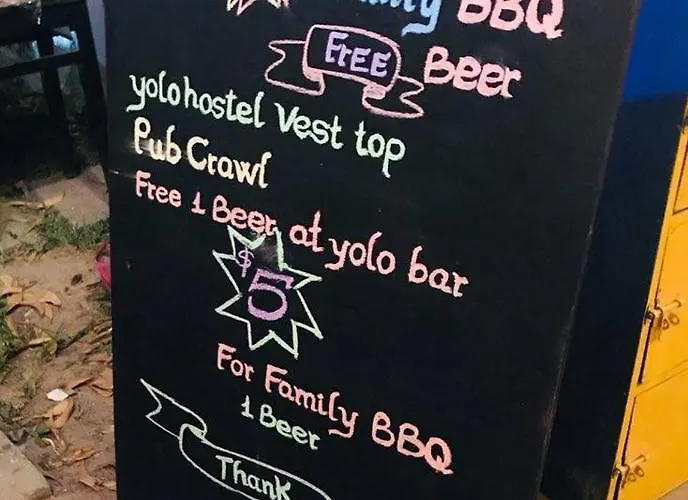 BBQ
FREE Beer
yolo hostel Vest top
Pub Crawl
Free 1 Beer at yolo bar
$5
For Family BBQ
1 Beer
Thank